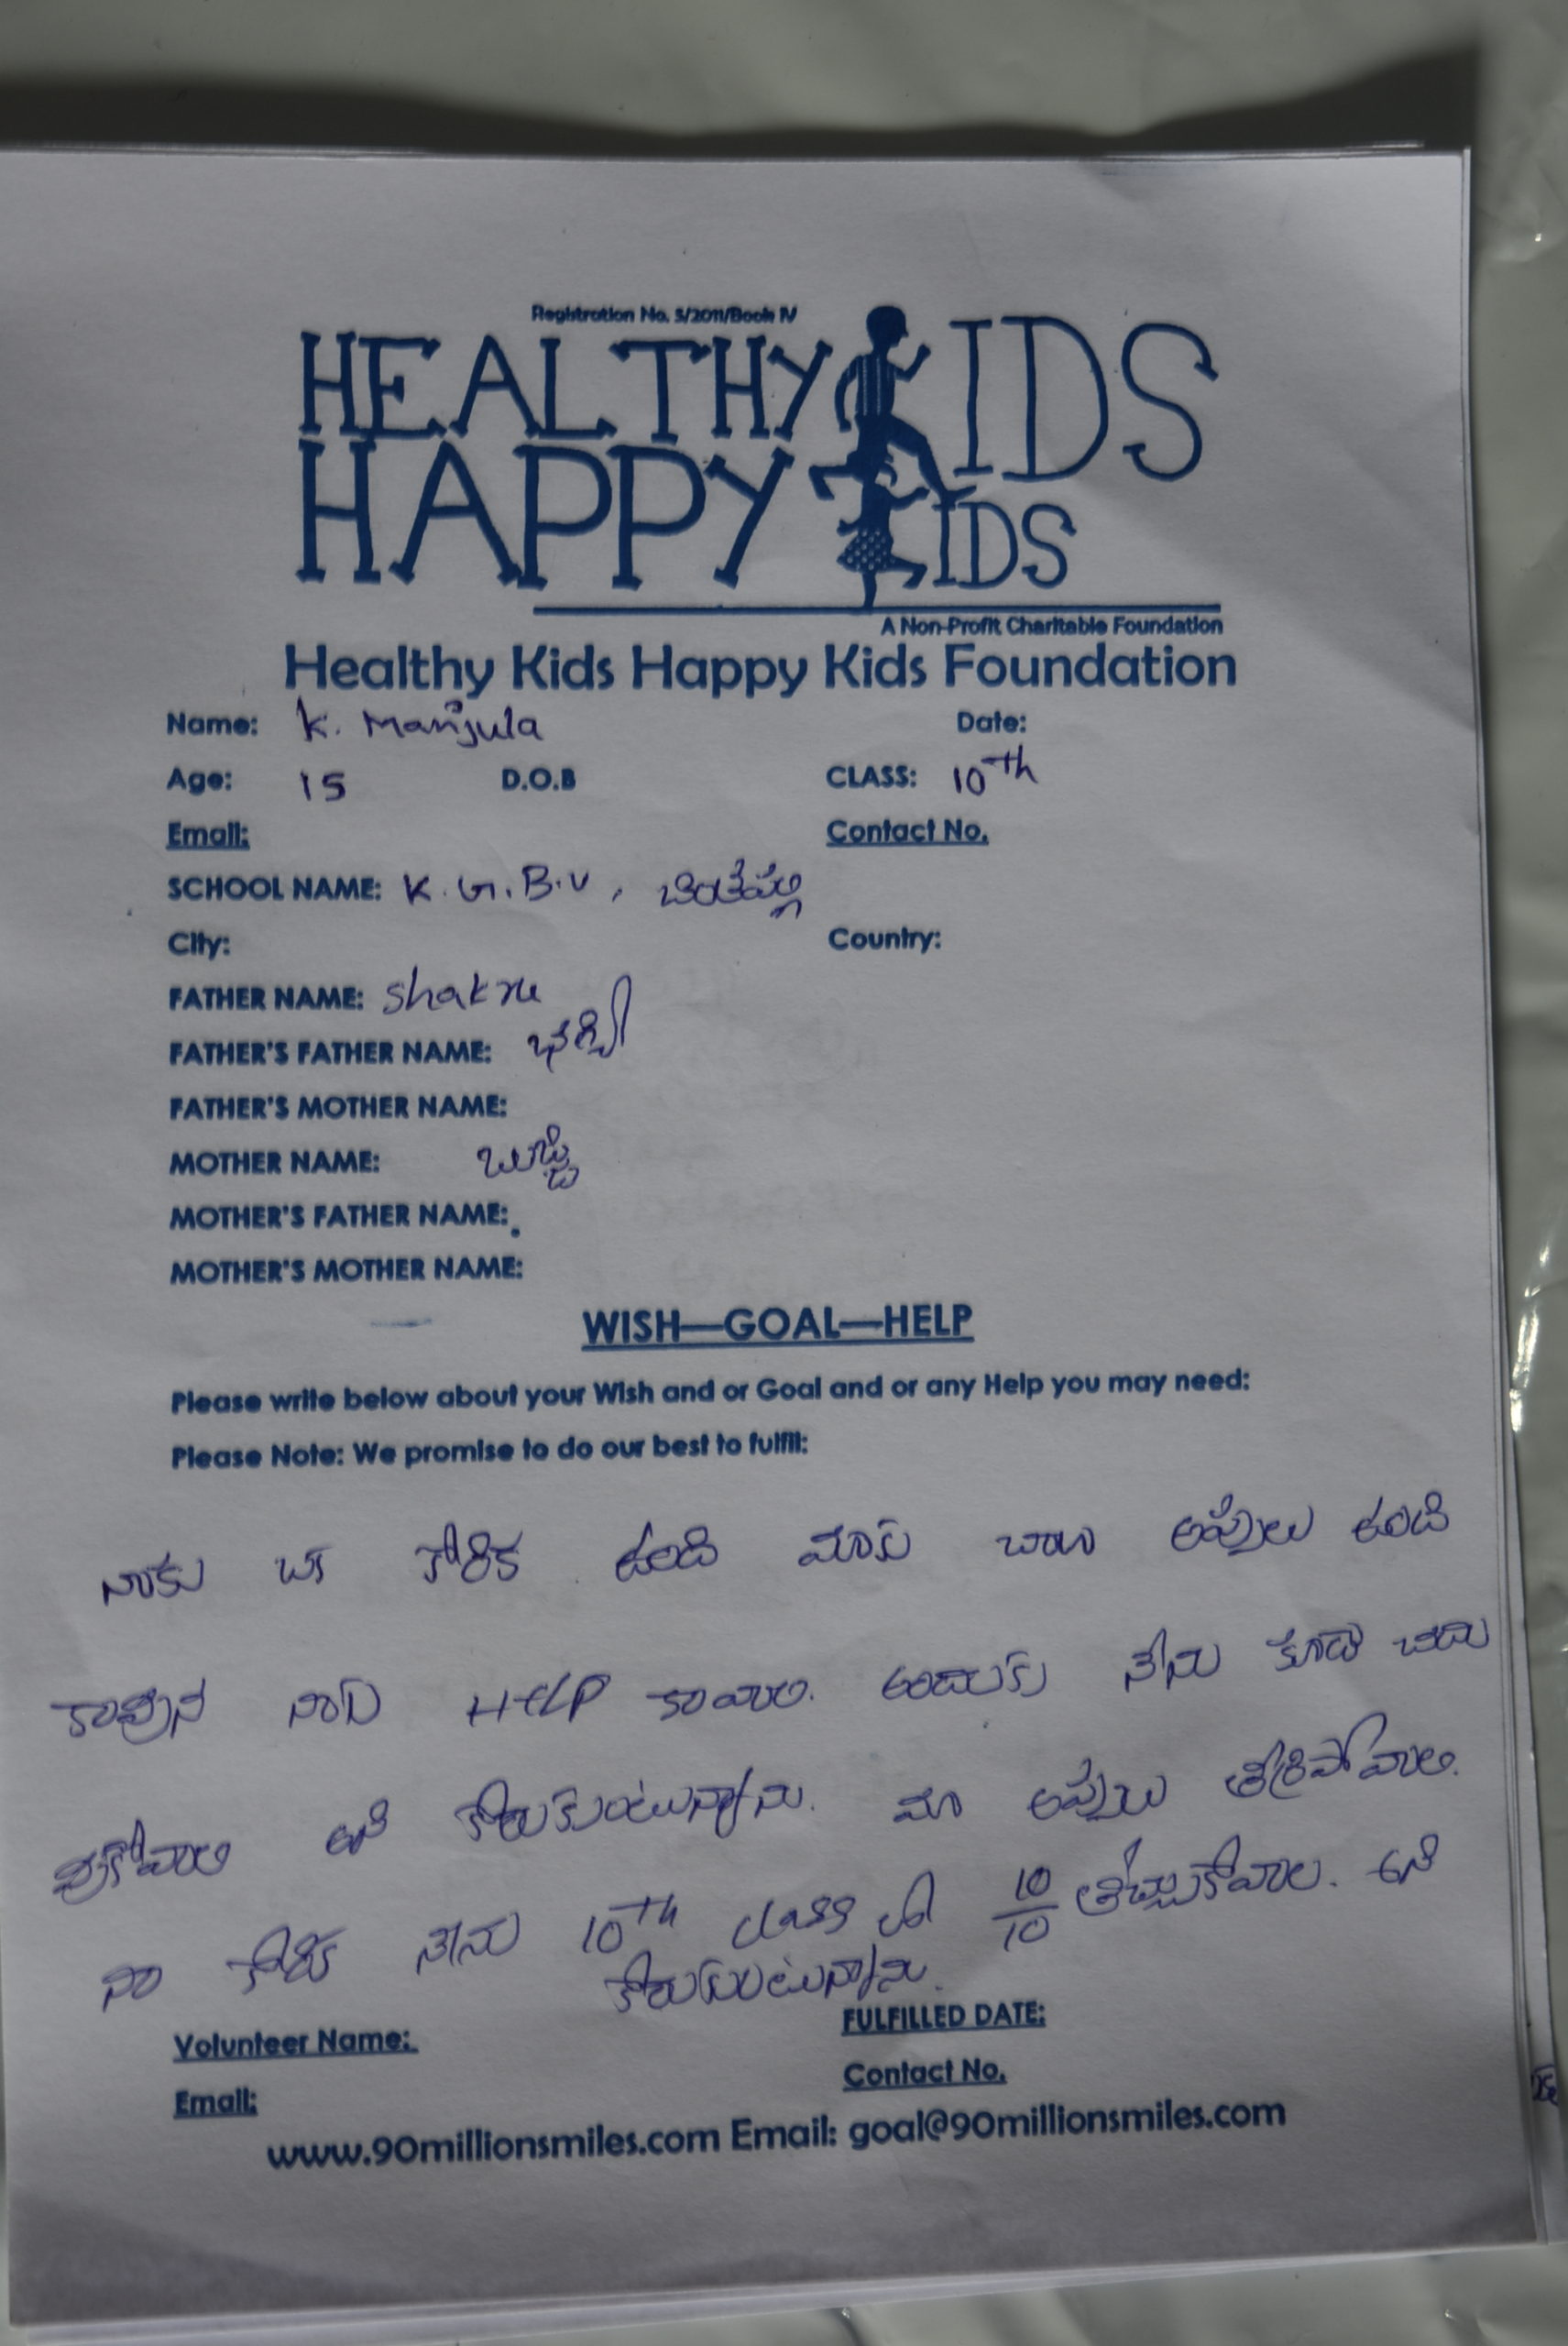 Registration No. 5/2011/Book IV
HEALTHY KIDS
HAPPY KIDS
A Non-Profit Charitable Foundation
Healthy Kids Happy Kids Foundation
Name: K. Manjula Date:
Age: 15 D.O.B CLASS: 10th
Email: Contact No.
SCHOOL NAME: K.G.B.V, చింతపల్లి
City: Country:
FATHER NAME: Shakru
FATHER'S FATHER NAME:
FATHER'S MOTHER NAME:
MOTHER NAME: బుజ్జి
MOTHER'S FATHER NAME:
MOTHER'S MOTHER NAME:
WISH—GOAL—HELP
Please write below about your Wish and or Goal and or any Help you may need:
Please Note: We promise to do our best to fulfil:
నాకు ఒక కోరిక ఉంది మాకు చాలా అప్పులు ఉంది
కావున నాకు HELP కావాలి. అందుకు నేను కూడా చదు
వుకోవాలి అని కోరుకుంటున్నాను. మా అప్పులు తీరిపోవాలి.
నా కోరిక నేను 10th class లో 10/10 తెచ్చుకోవాల. అని
కోరుకుంటున్నాను.
Volunteer Name: FULFILLED DATE:
Email: Contact No.
www.90millionsmiles.com Email: goal@90millionsmiles.com